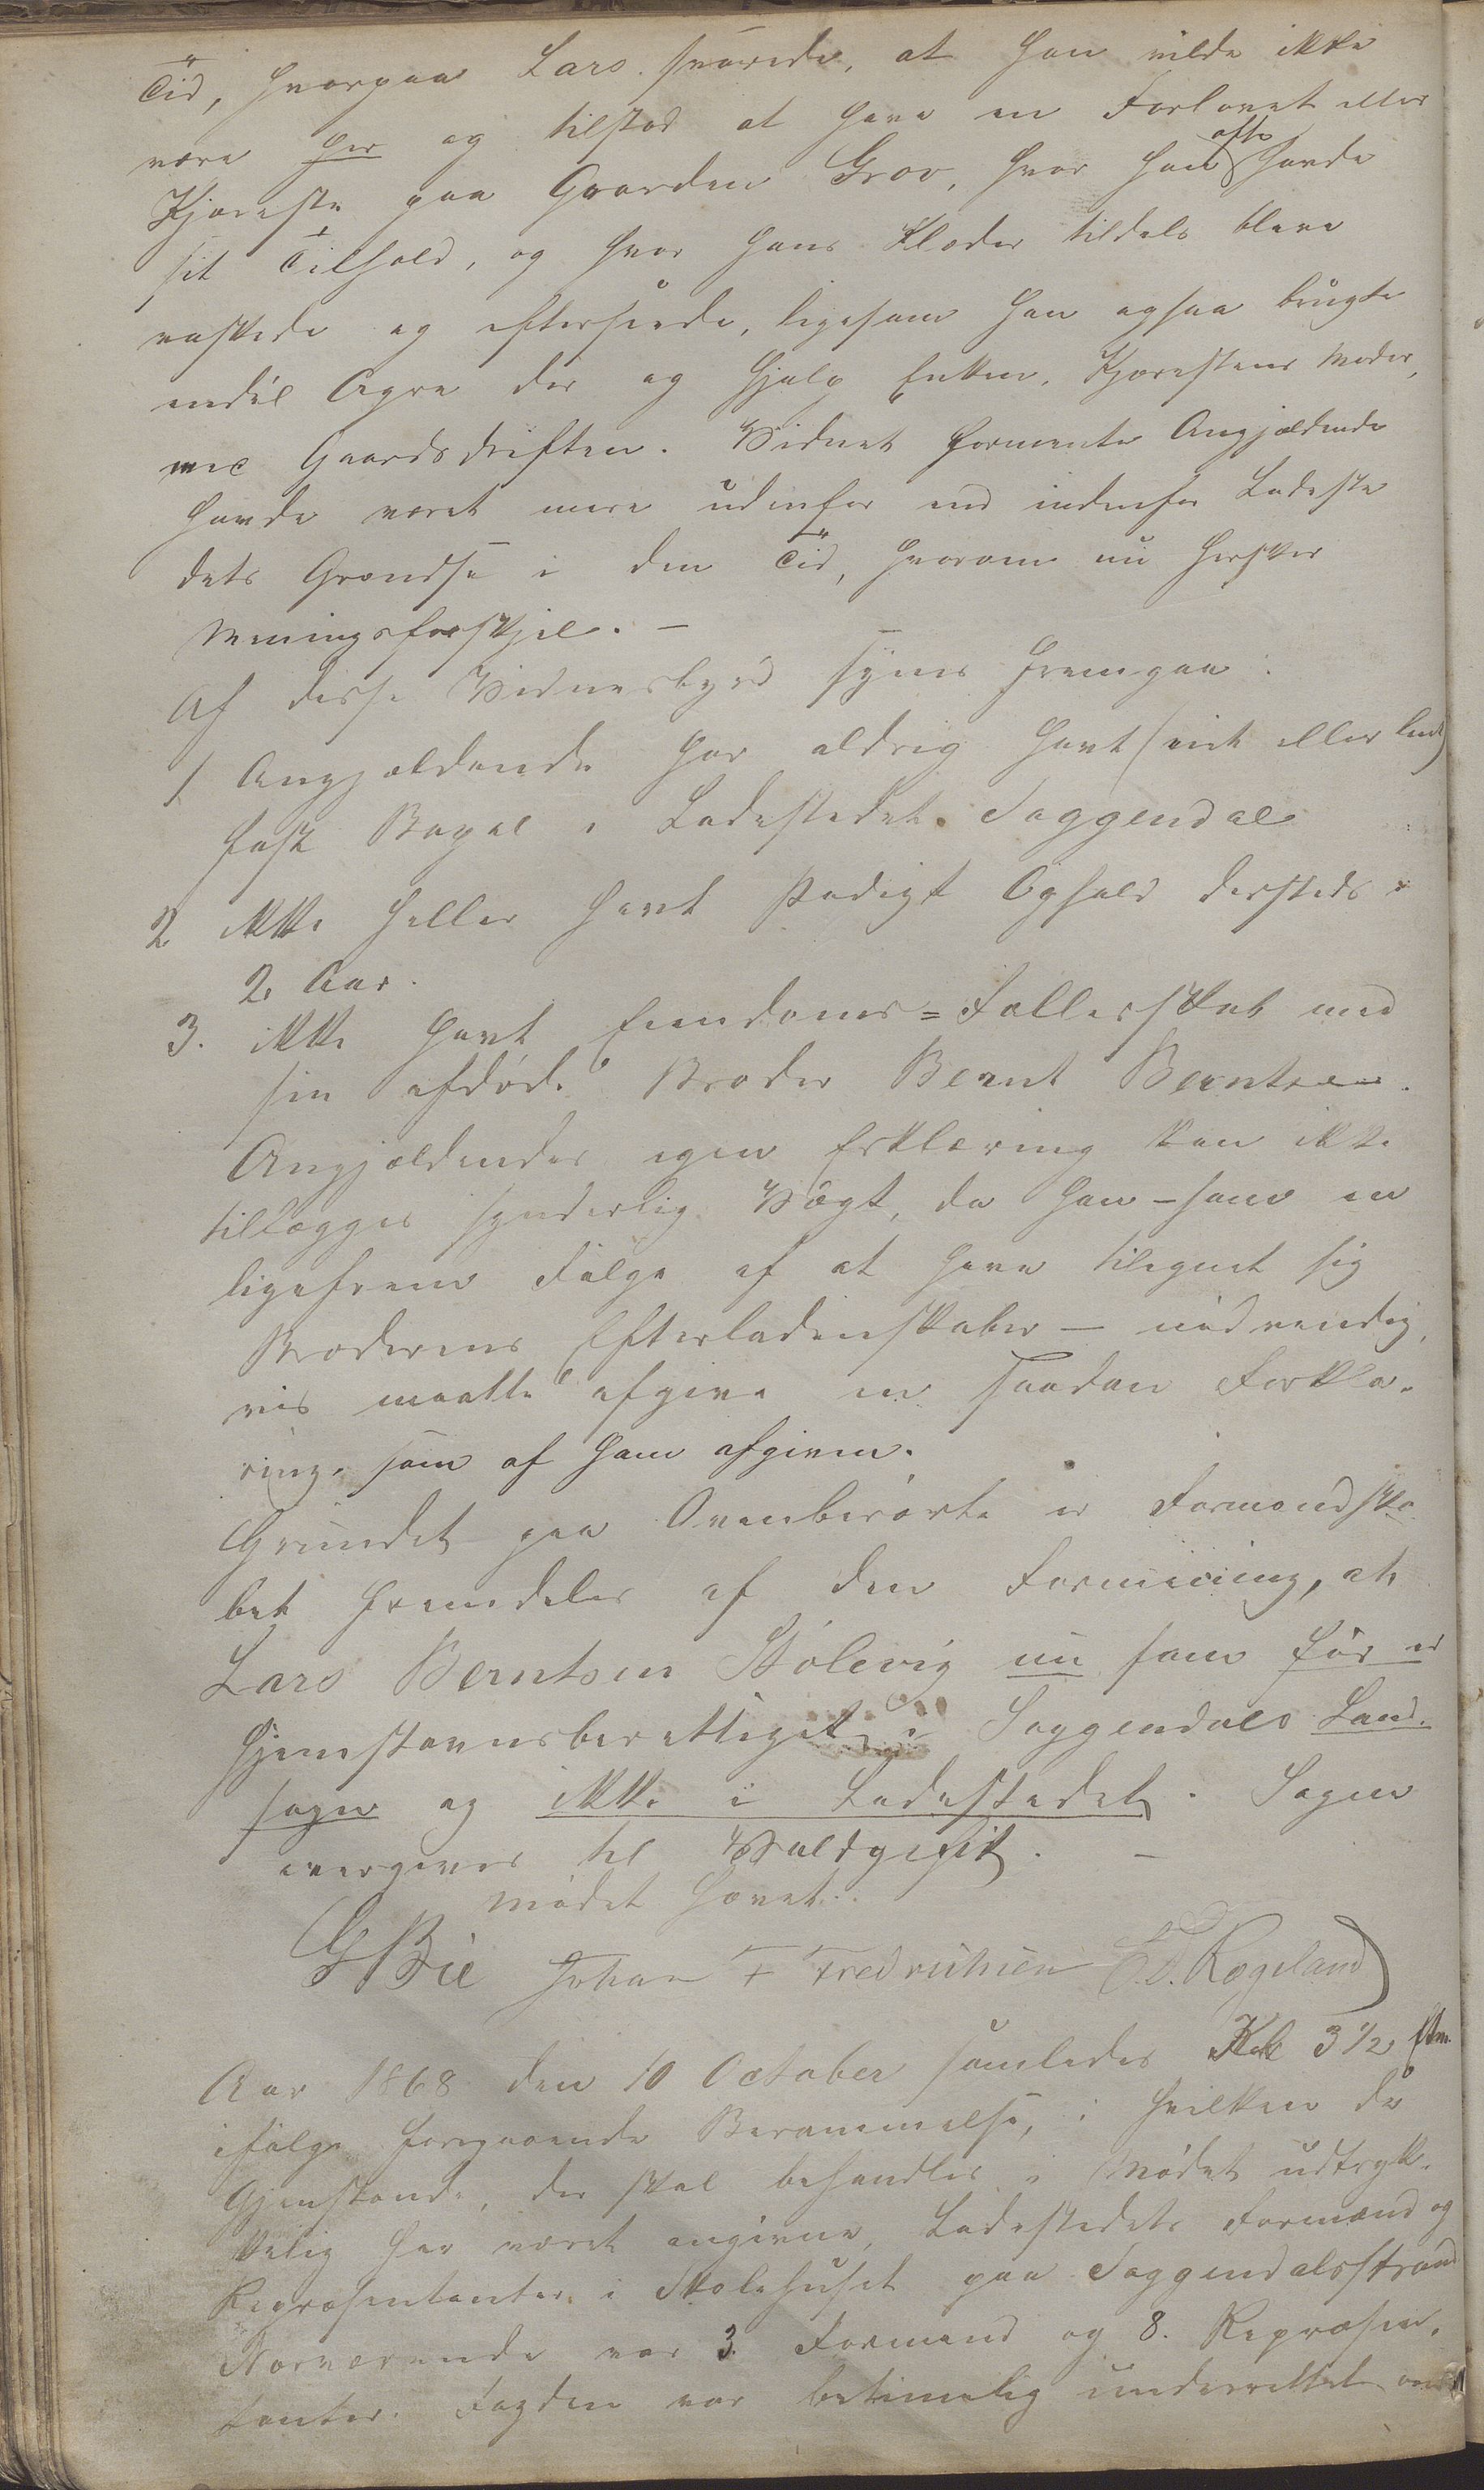 Tid, hvorpaa Lars svarede, at han vilde ikke
være her og tilstod at have en Forlovet eller
Kjæreste paa Gaarden Grov, hvor han ofte havde
sit Tilhold, og hvor hans Klæder tildels bleve
vaskede og efterseede, ligesom han ogsaa brugte
endel Agre der og hjalp Enken, Kjærestens Moder,
med Gaardsdriften. Vidnet formente Angjældende
havde været mere udenfor end indenfor Ladeste
dets Grændse i den Tid, hvorom nu hersker
Meningsforskjel. –
Af disse Vidnesbyrd synes fremgaa:
1 Angjældende har aldrig havt (eiet eller leiet)
fast Bopæl i Ladestedet Soggendal
2 ikke heller havt stadigt Ophold dersteds i
2 Aar.
3. ikke havt Eiendoms=Fællesskab med
sin afdøde Broder Bernt Berntsen.
Angjældendes egen Erklæring kan ikke
tillægges synderlig Vægt, da han – som en
ligefrem Følge af at have tilegnet sig
Broderens Efterladenskaber – nødvendig
vis maatte afgive en saadan Forkla-
ring, som af ham afgiven.
Grundet paa Ovenberørte er Formandska
bet fremdeles af den Formening, at
Lars Berntsen Stølevig nu som før er
hjemstavnsberettiget i Soggendals Land-
sogn og ikke i Ladestedet. Sagen
overgives til Voldgift. –
Mødet hævet.
G Bie Johan F Fredriksen E. D. Rægeland
Aar 1868 den 10 October samledes Kl 3 1/2 Eftm.
ifølge foregaaende Berammelse, i hvilken de
Gjenstande, der skal behandles i Mødet udtryk-
kelig har været angivne, Ladestedets Formænd og
Repræsentanter i Skolehuset paa Soggendalsstrand
Nærværende var 3 Formænd og 8. Repræsen-
tanter. Fogden var betimelig underrettet om